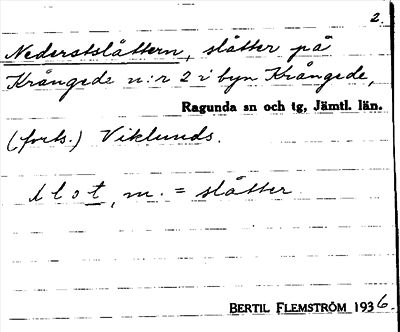 2.
Nederstslåttern, slåtter på
Krångede n:r 2 i byn Krångede,
Ragunda sn och tg, Jämtl. län.
(forts.) Viklunds.
slot, m. = slåtter
BERTIL FLEMSTRÖM 1936.